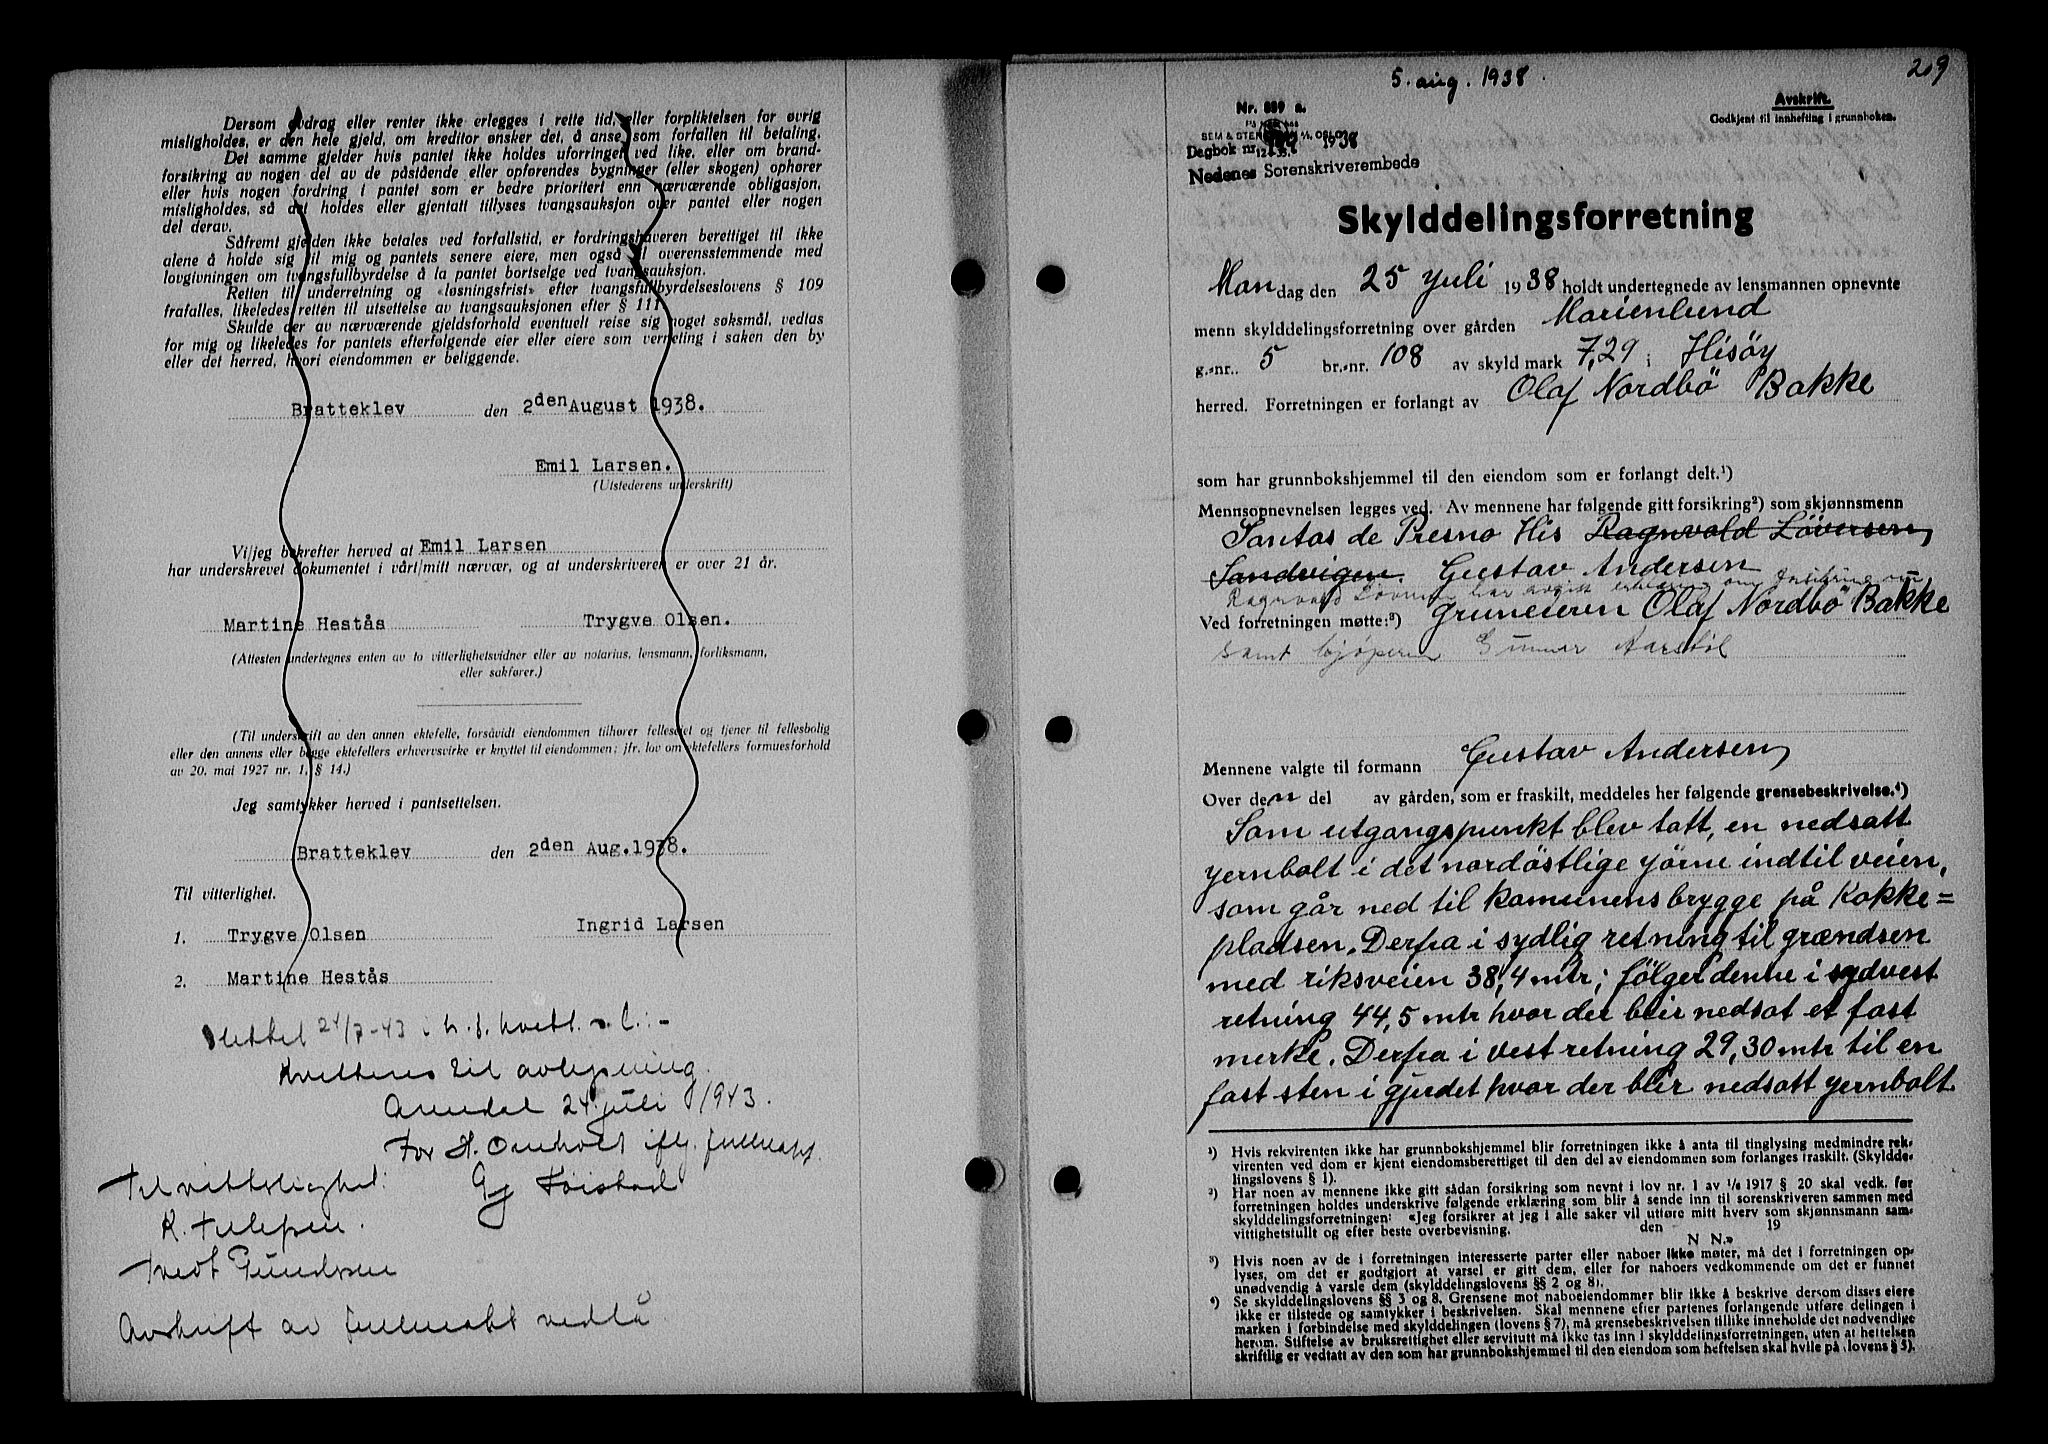 Dersom avdrag eller renter ikke erlegges i rette tid, eller forpliktelsen for øvrig
misligholdes, er den hele gjeld, om kreditor ønsker det, å anse som forfallen til betaling.
Det samme gjelder hvis pantet ikke holdes uforringet ved like, eller om brand-
forsikring av nogen del av de påstående eller opførendes bygninger (eller skogen) ophører
eller hvis nogen fordring i pantet som er bedre prioritert enn nærværende obligasjon,
misligholdes, så det holdes eller gjentatt tillyses tvangsauksjon over pantet eller nogen
del derav.
Såfremt gjelden ikke betales ved forfallstid, er fordringshaveren berettiget til ikke
alene å holde sig til mig og pantets senere eiere, men også til overensstemmende med
lovgivningen om tvangsfullbyrdelse å la pantet bortselge ved tvangsauksjon.
Retten til underretning og «løsningsfrist» efter tvangsfullbyrdelseslovens § 109
frafalles, likeledes retten til utsettelse av tvangsauksjonen efter § 111
Skulde der av nærværende gjeldsforhold eventuelt reise sig noget søksmål, vedtas
for mig og likeledes for pantets efterfølgende eier eller eiere som verneting i saken den by
eller det herred, hvori eiendommen er beliggende.
Bratteklev den 2den August 1938.
Emil Larsen.
(Utstederens underskrift)
Vi/jeg bekrefter herved at Emil Larsen
har underskrevet dokumentet i vårt/mitt nærvær, og at underskriveren er over 21 år.
Martine Hestås Trygve Olsen.
(Attesten undertegnes enten av to vitterlighetsvidner eller av notarius, lensmann, forliksmann,
eller sakfører.)
(Til underskrift av den annen ektefelle, forsåvidt eiendommen tilhører felleseiet og tjener til fellesbolig
eller den annens eller begge ektefellers erhvervsvirke er knyttet til eiendommen; jfr. lov om ektefellers formuesforhold
av 20. mai 1927 nr. 1, § 14.)
Jeg samtykker herved i pantsettelsen.
Bratteklev den 2den Aug. 1938.
Til vitterlighet.
1. Trygve Olsen Ingrid Larsen
2. Martine Hestås
Slettet 24/7-43 i h. t. kvitt.
Kvitteres til avlysning.
Arendal 24 juli 1943.
For H. Omholt iflg. fullmakt.
Til vitterlighet:
Avskrift av fullmakt vedlå
209
5. aug. 1938.
Nr. 889 a.
Avskrift.
Godkjent til innhefting i grunnboken.
Dagbok nr. 1938
Nedenes Sorenskriverembede
Skylddelingsforretning
Mandag den 25 yuli 1938 holdt undertegnede av lensmannen opnevnte
menn skylddelingsforretning over gården Marienlund
g.-nr. 5 br.-nr. 108 av skyld mark 7,29 i Hisøy
herred. Forretningen er forlangt av Olaf Nordbö Bakke
som har grunnbokshjemmel til den eiendom som er forlangt delt.¹)
Mennsopnevnelsen legges ved. Av mennene har følgende gitt forsikring²) som skjønnsmenn
Santos de Presno His Ragnvald Löversen
Sandvigen. Gustav Andersen
Ved forretningen møtte:³) gruneieren Olaf Nordbö Bakke
samt kjøperen Gunnar Aarstöl
Mennene valgte til formann Gustav Andersen
Over den del av gården, som er fraskilt, meddeles her følgende grensebeskrivelse.⁴)
Som utgangspunkt blev tatt, en nedsatt
yernbolt i det nordöstlige yörne indtil veien,
som går ned til komunens brygge på Kokke=
pladsen. Derfra i sydlig retning til grændsen
med riksveien 38,4 mtr; fölger denne i sydvest
retning 44,5 mtr hvor der blir nedsat et fast
merke. Derfra i vest retning 29,30 mtr til en
fast sten i gjerdet hvor der blir nedsatt yernbolt
¹) Hvis rekvirenten ikke har grunnbokshjemmel blir forretningen ikke å anta til tinglysing medmindre rek-
virenten ved dom er kjent eiendomsberettiget til den del av eiendommen som forlanges fraskilt. (Skyldde-
lingslovens § 1).
²) Har noen av mennene ikke gitt sådan forsikring som nevnt i lov nr. 1 av 1/6 1917 § 20 skal vedk. før
forretningen holdes underskrive følgende erklæring som blir å sende inn til sorenskriveren sammen med
skylddelingsforretningen: «Jeg forsikrer at jeg i alle saker vil utføre mitt hverv som skjønnsmann sam-
vittighetsfullt og efter beste overbevisning. den 19
N N.»
³) Hvis noen av de i forretningen interesserte parter eller naboer ikke møter, må det i forretningen op-
lyses, om det er godtgjort at varsel er gitt dem, eller for naboers vedkommende om det er funnet
unødvendig å varsle dem (skylddelingslovens §§ 2 og 8).
⁴) Se skylddelingslovens §§ 3 og 8. Grensene mot naboeiendommer blir ikke å beskrive dersom disses eiere
ikke er tilstede og samtykker i beskrivelsen. Skal mennene efter partenes forlangende utføre delingen i
marken i forbindelse med skylddelingen (lovens § 7), må grensebeskrivelsen tillike inneholde det nødvendige
herom. Stiftelse av bruksrettighet eller servitutt må ikke tas inn i skylddelingsforretningen, uten at heftelsen
skriftlig er vedtatt av den som har grunnbokshjemmel til den eiendom som heftelsen skal hvile på (lovens § 5).